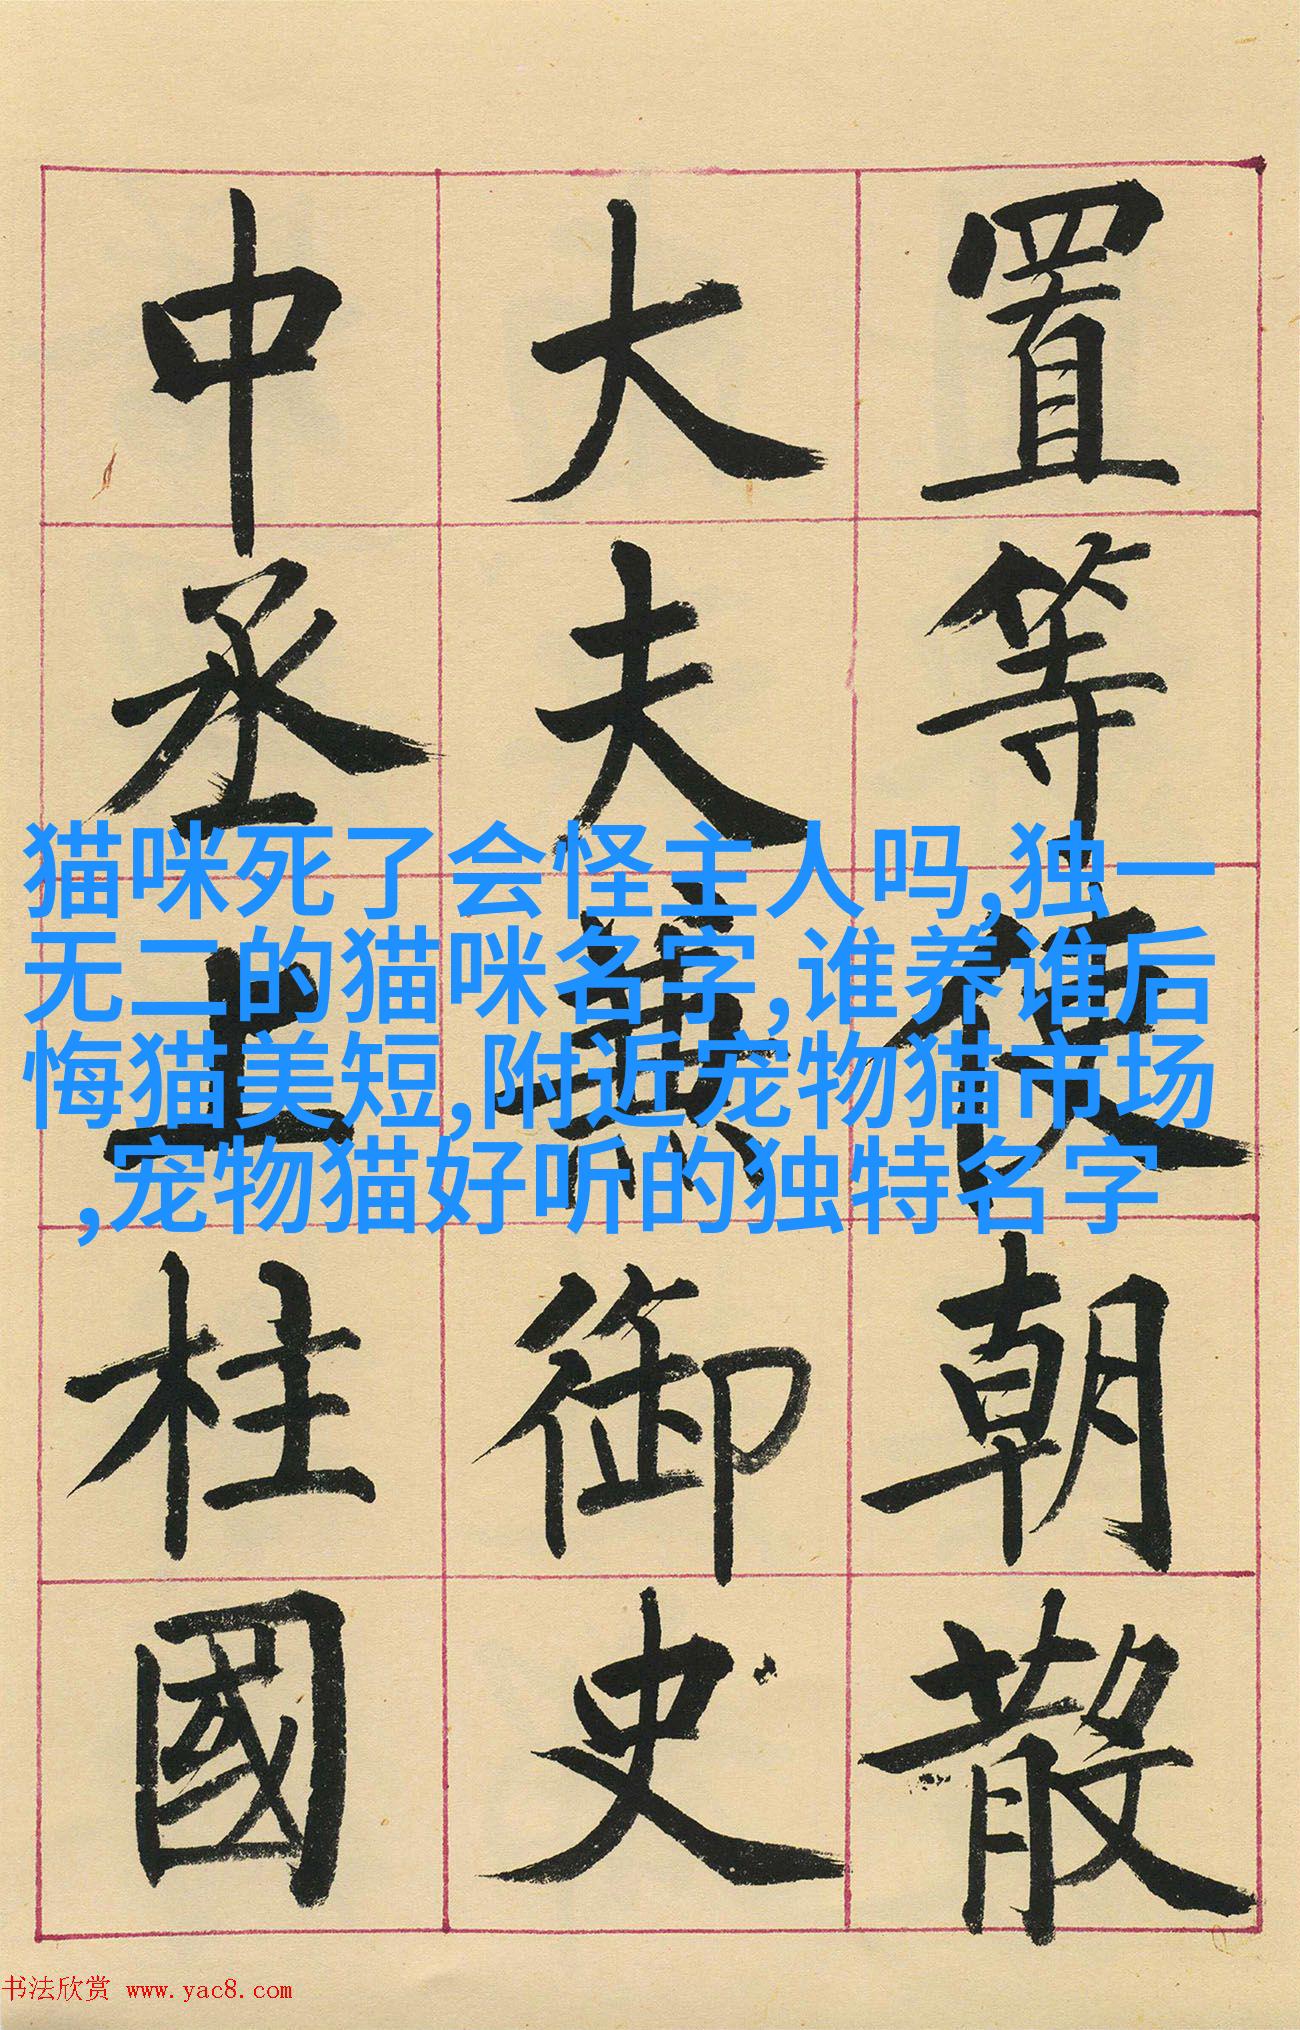 置等使朝散
大夫兼御史
中丞上柱國
猫咪死了会怪主人吗,独一
无二的猫咪名字,谁养谁后
悔猫美短,附近宠物猫市场
,宠物猫好听的独特名字
书法欣赏 www.yac8.com